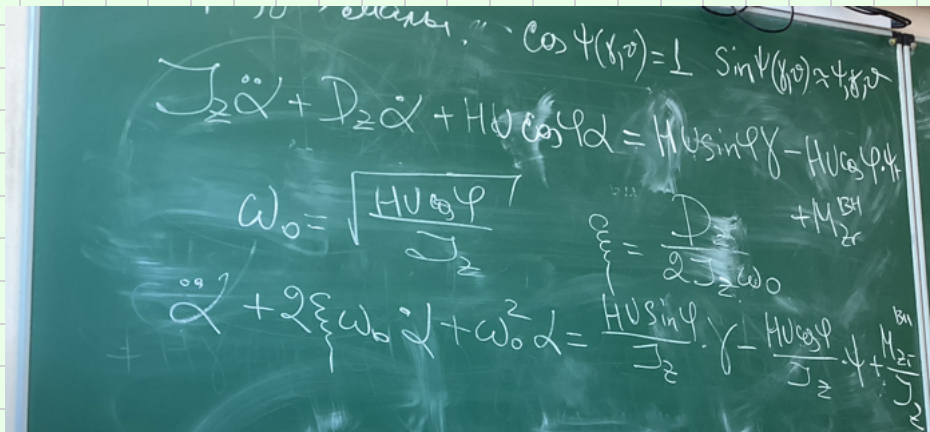 cos ψ(γ,ϑ)=1 sin ψ(γ,ϑ)≈ψ,γ,ϑ
J_z α̈ + D_z α̇ + HU cosφ α = HU sinφ γ − HU cosφ·ψ
+M_{zг}^{вн}
ω₀ = √(HU cosφ / J_z) ξ = D_z / 2J_z ω₀
α̈ + 2ξω₀ α̇ + ω₀² α = HU sinφ / J_z · γ − HU cosφ / J_z · ψ + M_{zг}^{вн} / J_z